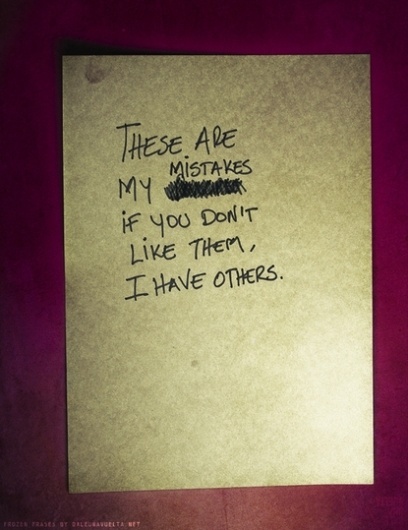 THESE ARE
MISTAKES
MY
iF YOU DON'T
LiKE THEM,
I HAVE OTHERS.